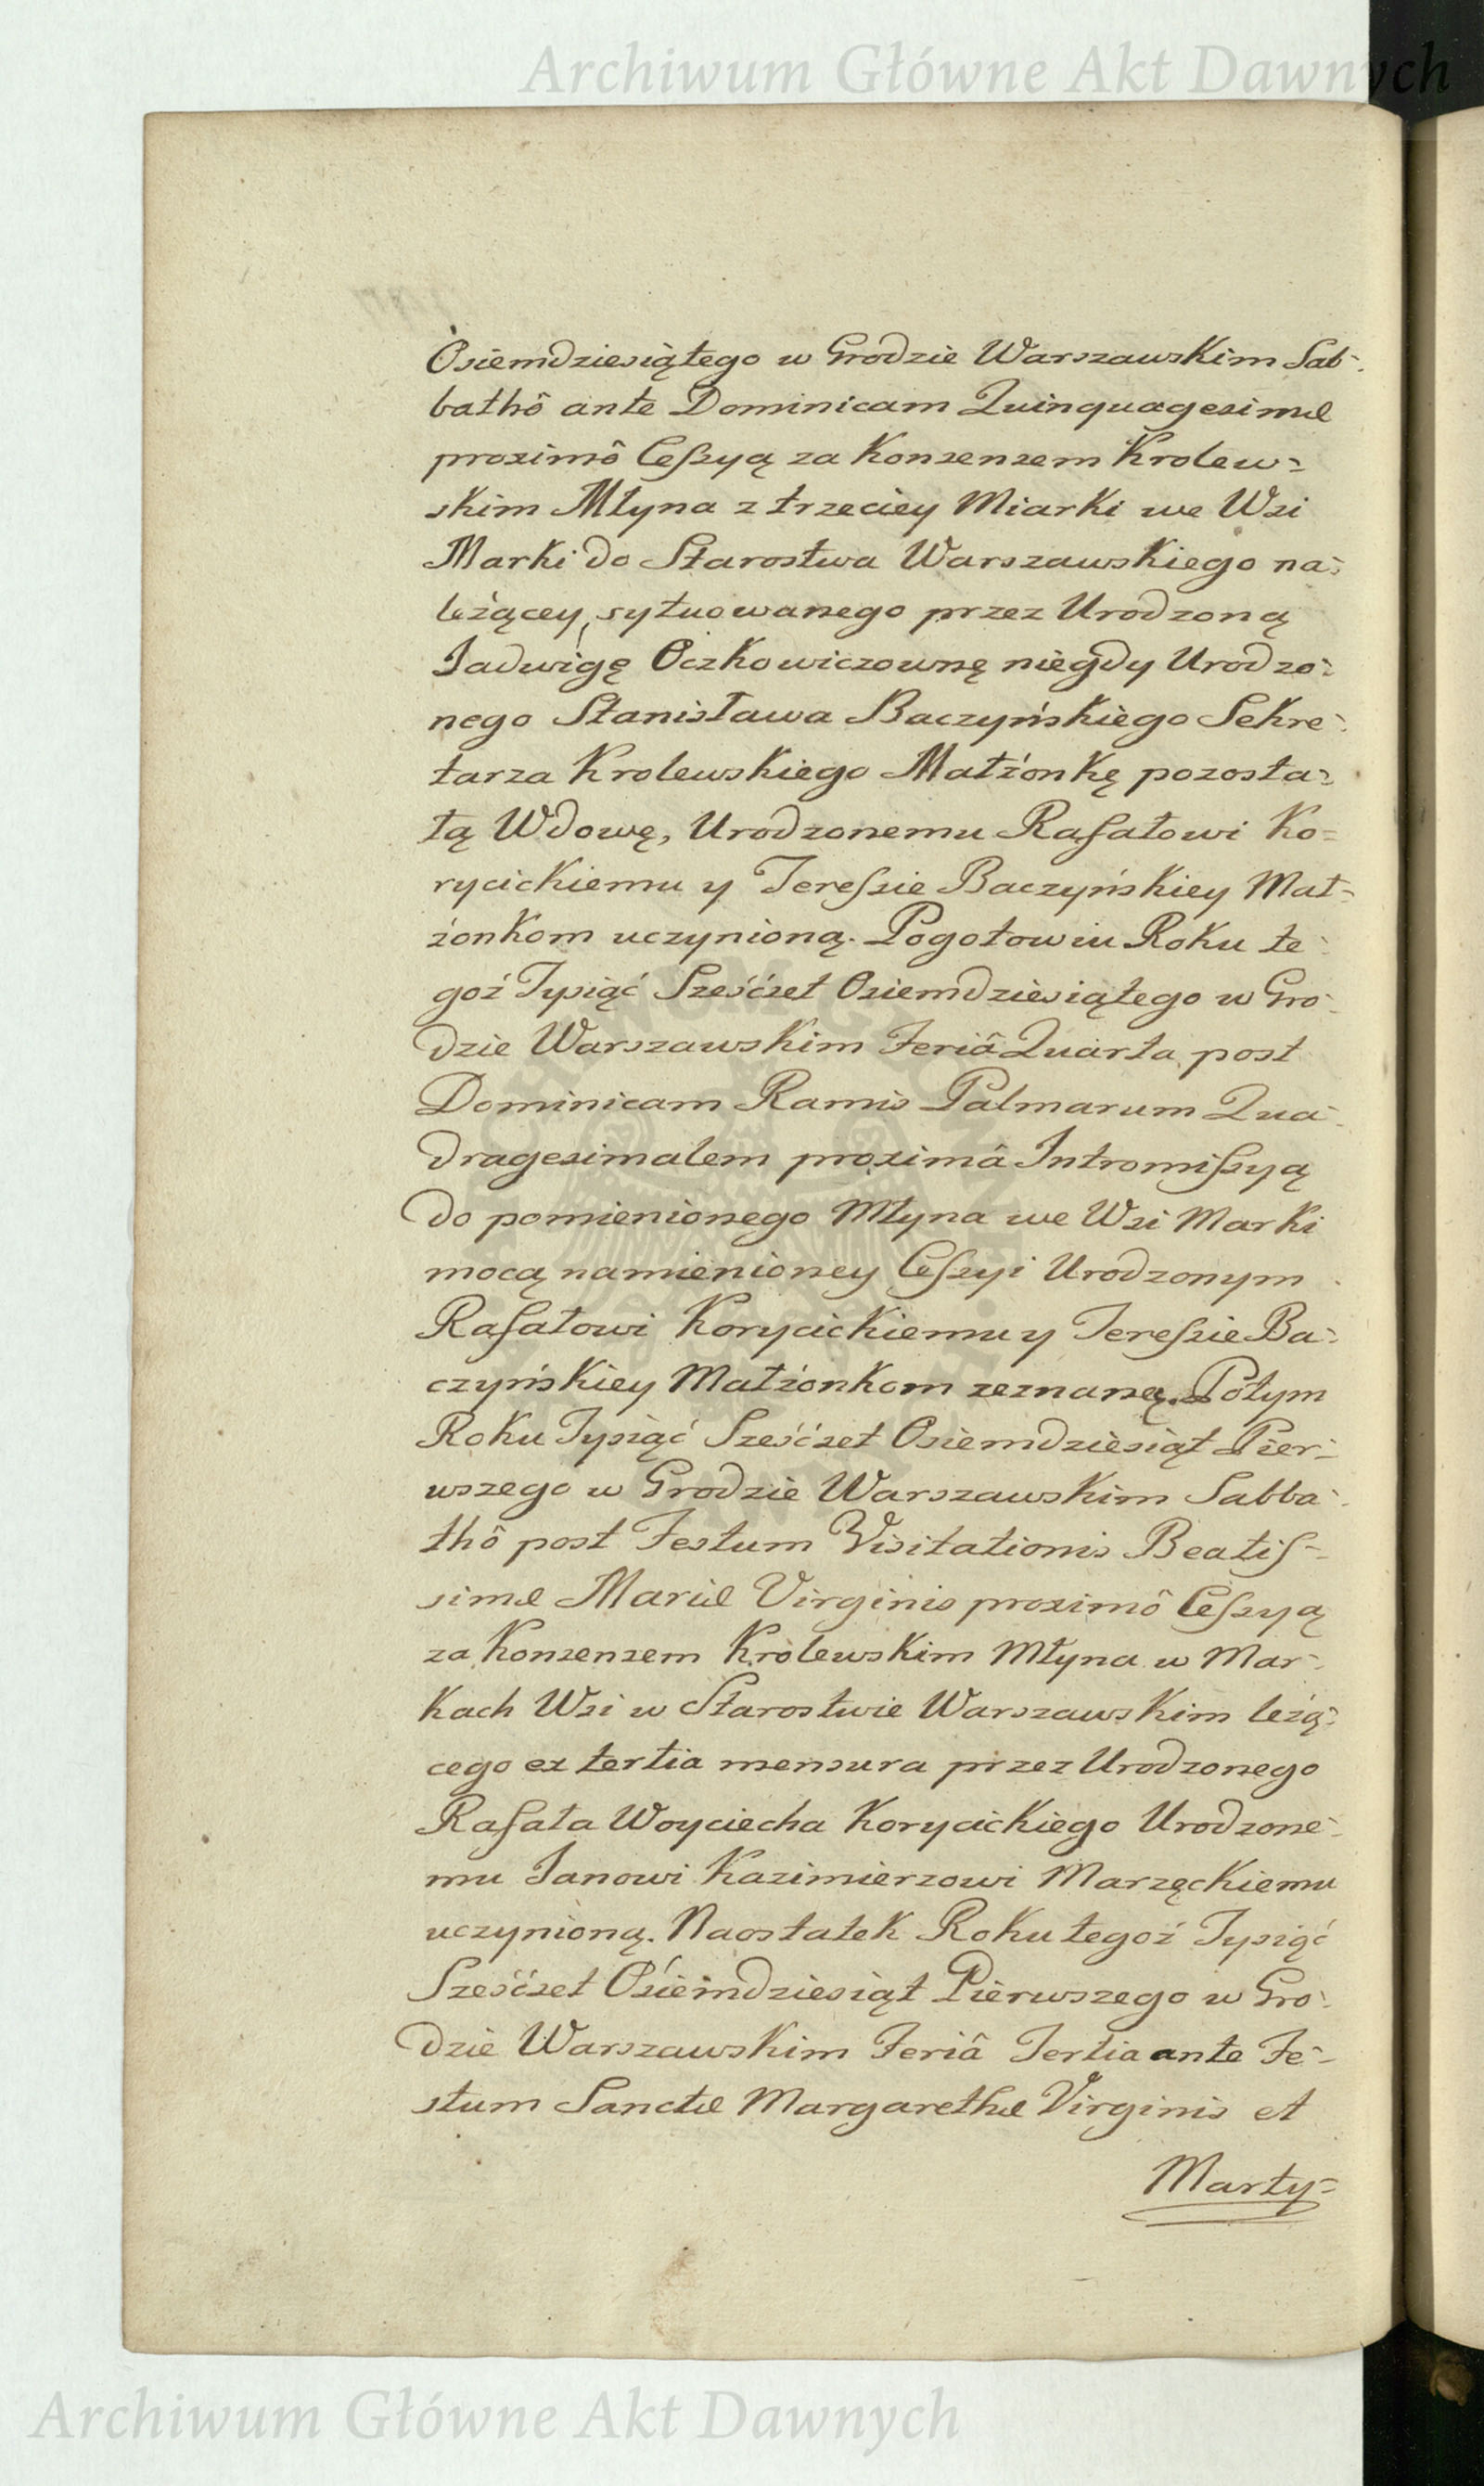 Archiwum Główne Akt Dawnych
Osiemdziesiątego w Grodzie Warszawskim Sab-
bathô ante Dominicam Quinquagesimæ
proximô Cessyą za Konsensem Krolew-
skim Młyna z trzeciey Miarki we Wsi
Marki do Starostwa Warszawskiego na-
leżącey, sytuowanego przez Urodzoną
Jadwigę Oczkowiczownę niegdy Urodzo-
nego Stanisława Baczyńskiego Sekre-
tarza Krolewskiego Małżonkę pozosta-
łą Wdowę, Urodzonemu Rafałowi Ko-
rycickiemu y Teressie Baczyńskiey Mał-
żonkom uczynioną. Pogotowiu Roku te-
goż Tysiąć Sześćset Osiemdziesiątego w Gro-
dzie Warszawskim Feriâ Quarta post
Dominicam Ramis Palmarum Qua-
dragesimalem proximâ Intromissyą
do pomienionego Młyna we Wsi Marki
mocą namienioney Cessyi Urodzonym
Rafałowi Korycickiemu y Teressie Ba-
czyńskiey Małżonkom zeznaną. Potym
Roku Tysiąć Sześćset Osiemdziesiąt Pier-
wszego w Grodzie Warszawskim Sabba-
thô post Festum Visitationis Beatis-
simæ Mariæ Virginis proximô Cessyą
za Konsensem Krolewskim Młyna w Mar-
kach Wsi w Starostwie Warszawskim leżą-
cego ex tertia mensura przez Urodzonego
Rafała Woyciecha Korycickiego Urodzone-
mu Janowi Kazimierzowi Marzęckiemu
uczynioną. Naostatek Roku tegoż Tysiąć
Sześćset Osiemdziesiąt Pierwszego w Gro-
dzie Warszawskim Feriâ Tertia ante Fe-
stum Sanctæ Margarethæ Virginis et
Marty-
Archiwum Główne Akt Dawnych